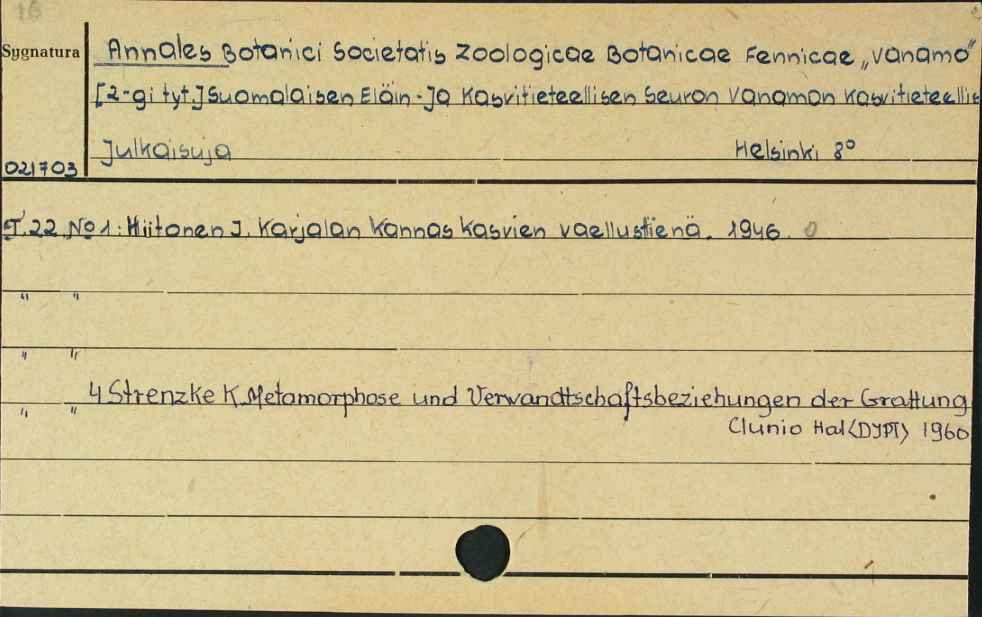 16
Sygnatura Annales Botanici Societatis Zoologicae Botanicae Fennicae „Vanamo”
[2-gi tyt.] Suomalaisen Eläin-Ja Kasvitieteellisen Seuron Vanamon Kasvitieteellis
Julkaisuja Helsinki 8°
021703
T. 22 No 1: Hiitonen J. Karjalan Kannas Kasvien vaellustienä. 1946. 0
" "
" "
4 Strenzke K. Metamorphose und Verwandtschaftsbeziehungen der Grattung
" "
Clunio Hal <DIPT> 1960